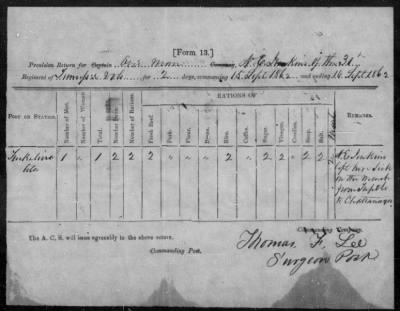 [FORM 13.]
Provision Return for Captain One man Company, N. C. Jenkins of the 31
Regiment of Tennessee Vols for 2 days, commencing 15 Sept 1862 and ending 16 Sept 1862
RATIONS OF
POST OR STATION. Number of Men. Number of Women. Total. Number of Days. Number of Rations. Fresh Beef. Pork. Flour. Bread. Rice. Coffee. Sugar. Vinegar. Candles. Soap. Salt. Meal REMARKS.
1 " 1 2 2 2 " " " 2 " 2 2 " 2 2 2
Jenkins
left here Sick
on the March
from
to Chattanooga
The A. C. S. will issue agreeably to the above return.
Commanding Company.
Commanding Post.
Thomas F. Lee
Surgeon Post